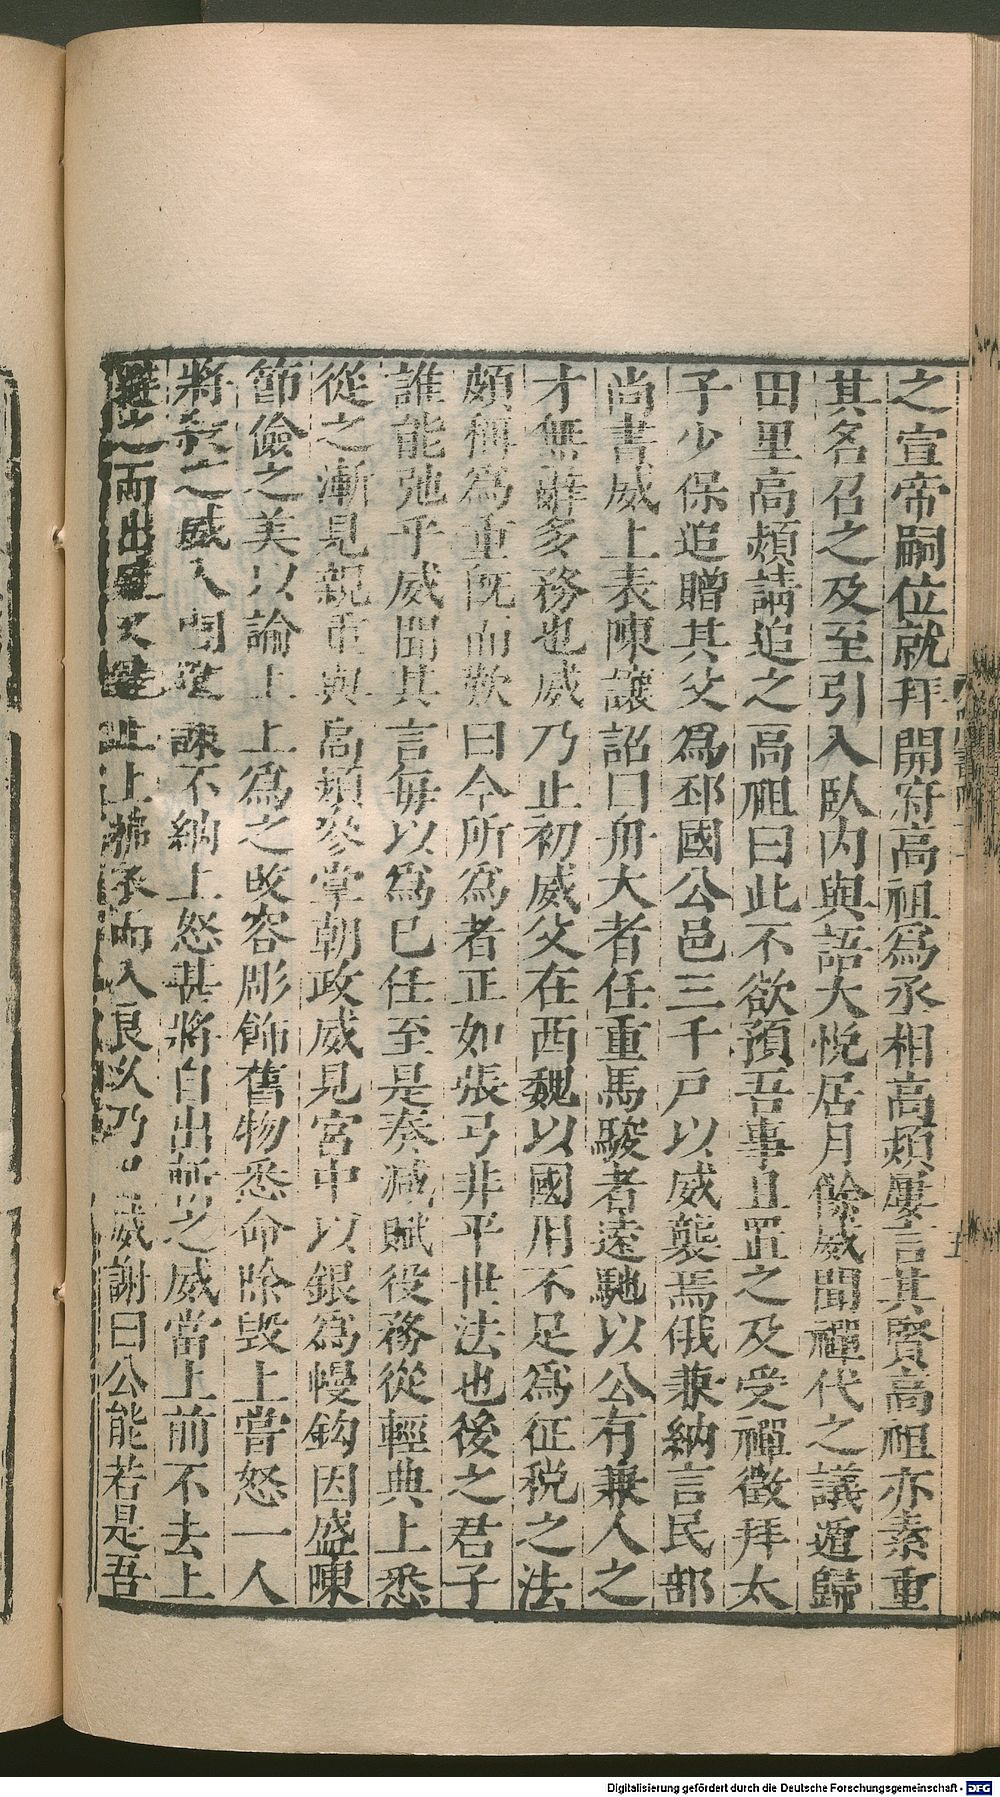 之宣帝嗣位就拜開府高祖爲丞相高熲屢言其賢高祖亦素重
其名召之及至引入臥內與語大悅居月餘威聞禪代之議遁歸
田里高熲請追之高祖曰此不欲預吾事且置之及受禪徵拜太
子少保追贈其父爲邳國公邑三千戸以威襲焉俄兼納言民部
尚書威上表陳讓詔曰舟大者任重馬駿者遠馳以公有兼人之
才無辭多務也威乃止初威父在西魏以國用不足爲征税之法
頗稱爲重旣而歎曰今所爲者正如張弓非平世法也後之君子
誰能弛乎威聞其言每以爲己任至是奏减賦役務從輕典上悉
從之漸見親重與高熲參掌朝政威見宮中以銀爲幔鈎因盛陳
節儉之美以諭上上爲之改容彫飾舊物悉命除毀上嘗怒一人
將殺之威入閤進諫不納上怒甚將自出斬之威當上前不去上
避之而出威又遮止上拂衣而入良久乃召威謝曰公能若是吾
五
Digitalisierung gefördert durch die Deutsche Forschungsgemeinschaft - DFG